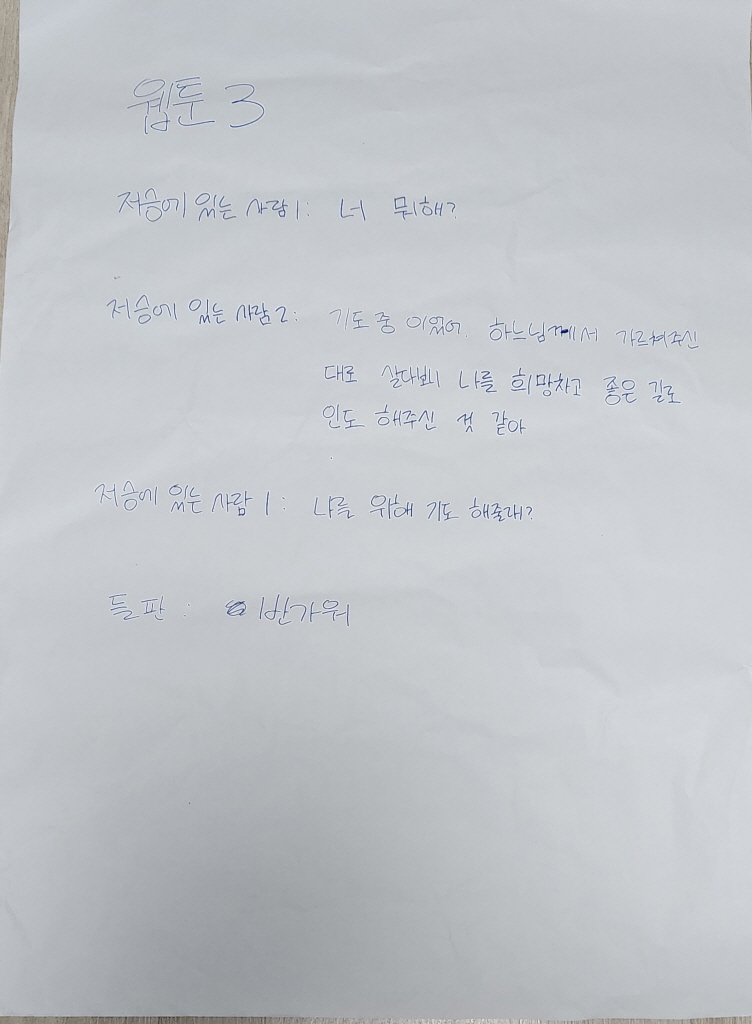 웹툰 3
저승에 있는 사람 1: 너 뭐해?
저승에 있는 사람 2: 기도 중 이었어. 하느님께서 가르쳐주신
대로 살다보니 나를 희망차고 좋은 길로
인도 해주신 것 같아
저승에 있는 사람 1: 나를 위해 기도 해줄래?
들판: 반가워